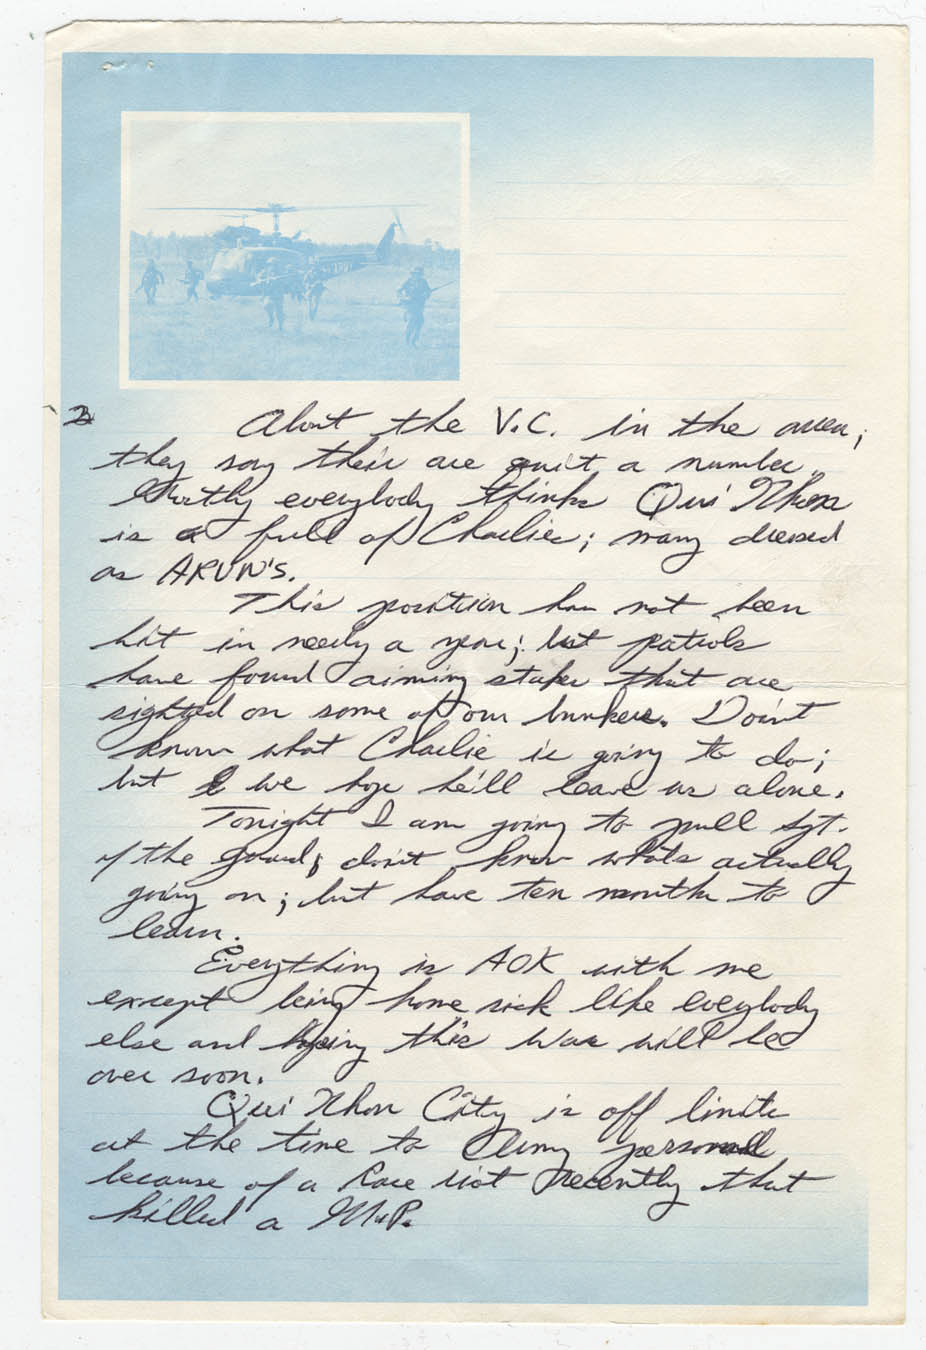 2
About the V.C. in the area;
they say their are quit a number.
Mostly everybody thinks Qui Nhon
is a full of Charlie; many dressed
as ARVN's.
This position has not been
hit in nearly a year; but patrols
have found aiming stakes that are
sighted on some of our bunkers. Don't
know what Charlie is going to do;
but we hope he'll leave us alone.
Tonight I am going to pull Sgt.
of the guard; don't know whats actually
going on; but have ten months to
learn.
Everything is AOK with me
except being home sick like everybody
else and hoping this War will be
over soon.
Qui Nhon City is off limits
at the time to Army personnel
because of a Race riot recently that
killed a M.P.